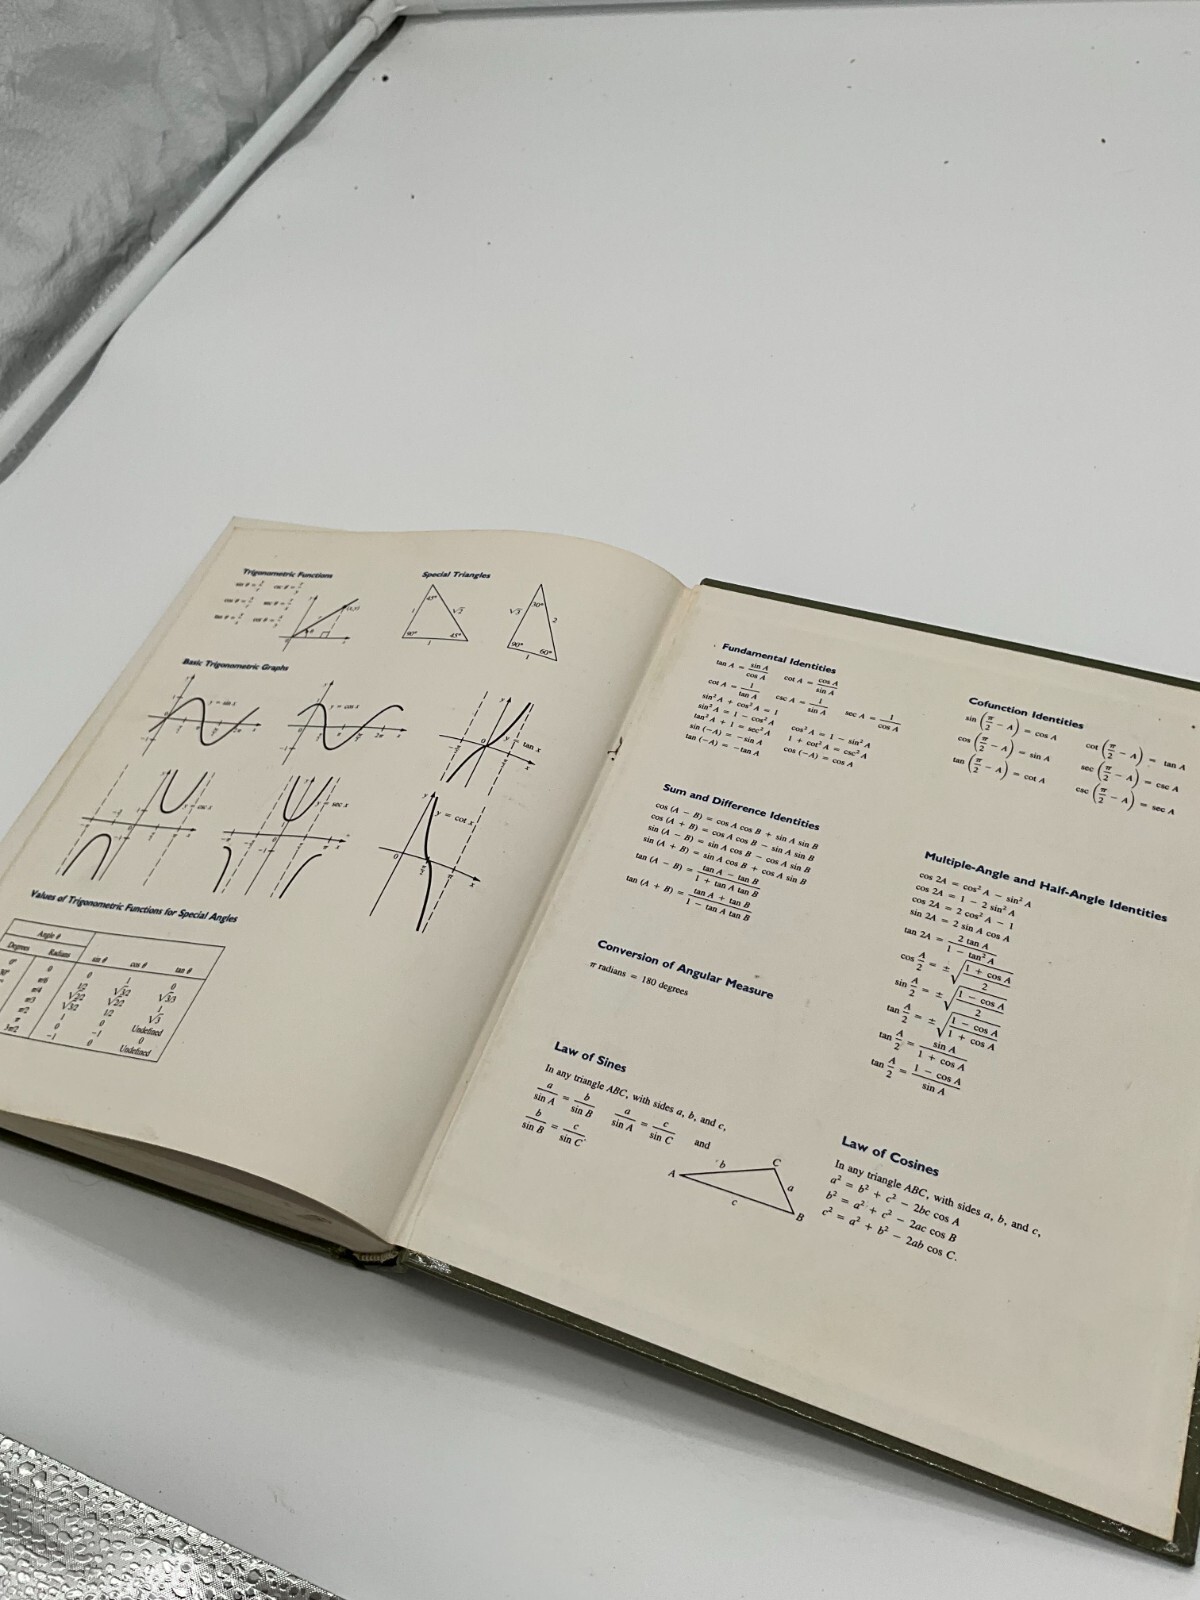 Trigonometric Functions
sin θ = y/r csc θ = r/y
cos θ = x/r sec θ = r/x
tan θ = y/x cot θ = x/y
(x, y)
r
θ
0
x
Special Triangles
45°
1
√2
90°
45°
1
30°
√3
2
90°
60°
1
Basic Trigonometric Graphs
y = sin x
y = cos x
y = tan x
y = csc x
y = sec x
y = cot x
Values of Trigonometric Functions for Special Angles
Angle θ
Degrees Radians sin θ cos θ tan θ
0° 0 0 1 0
π/6 1/2 √3/2 √3/3
π/4 √2/2 √2/2 1
π/3 √3/2 1/2 √3
π/2 1 0 Undefined
π 0 -1 0
3π/2 -1 0 Undefined
Fundamental Identities
tan A = sin A/cos A cot A = cos A/sin A
cot A = 1/tan A csc A = 1/sin A sec A = 1/cos A
sin² A + cos² A = 1
sin² A = 1 − cos² A cos² A = 1 − sin² A
tan² A + 1 = sec² A 1 + cot² A = csc² A
sin (−A) = −sin A cos (−A) = cos A
tan (−A) = −tan A
Cofunction Identities
sin (π/2 − A) = cos A cot (π/2 − A) = tan A
cos (π/2 − A) = sin A sec (π/2 − A) = csc A
tan (π/2 − A) = cot A csc (π/2 − A) = sec A
Sum and Difference Identities
cos (A − B) = cos A cos B + sin A sin B
cos (A + B) = cos A cos B − sin A sin B
sin (A − B) = sin A cos B − cos A sin B
sin (A + B) = sin A cos B + cos A sin B
tan (A − B) = tan A − tan B/1 + tan A tan B
tan (A + B) = tan A + tan B/1 − tan A tan B
Multiple-Angle and Half-Angle Identities
cos 2A = cos² A − sin² A
cos 2A = 1 − 2 sin² A
cos 2A = 2 cos² A − 1
sin 2A = 2 sin A cos A
tan 2A = 2 tan A/1 − tan² A
cos A/2 = ±√(1 + cos A/2)
sin A/2 = ±√(1 − cos A/2)
tan A/2 = ±√(1 − cos A/1 + cos A)
tan A/2 = sin A/1 + cos A
tan A/2 = 1 − cos A/sin A
Conversion of Angular Measure
π radians = 180 degrees
Law of Sines
In any triangle ABC, with sides a, b, and c,
a/sin A = b/sin B a/sin A = c/sin C and
b/sin B = c/sin C.
A
b
C
a
c
B
Law of Cosines
In any triangle ABC, with sides a, b, and c,
a² = b² + c² − 2bc cos A
b² = a² + c² − 2ac cos B
c² = a² + b² − 2ab cos C.